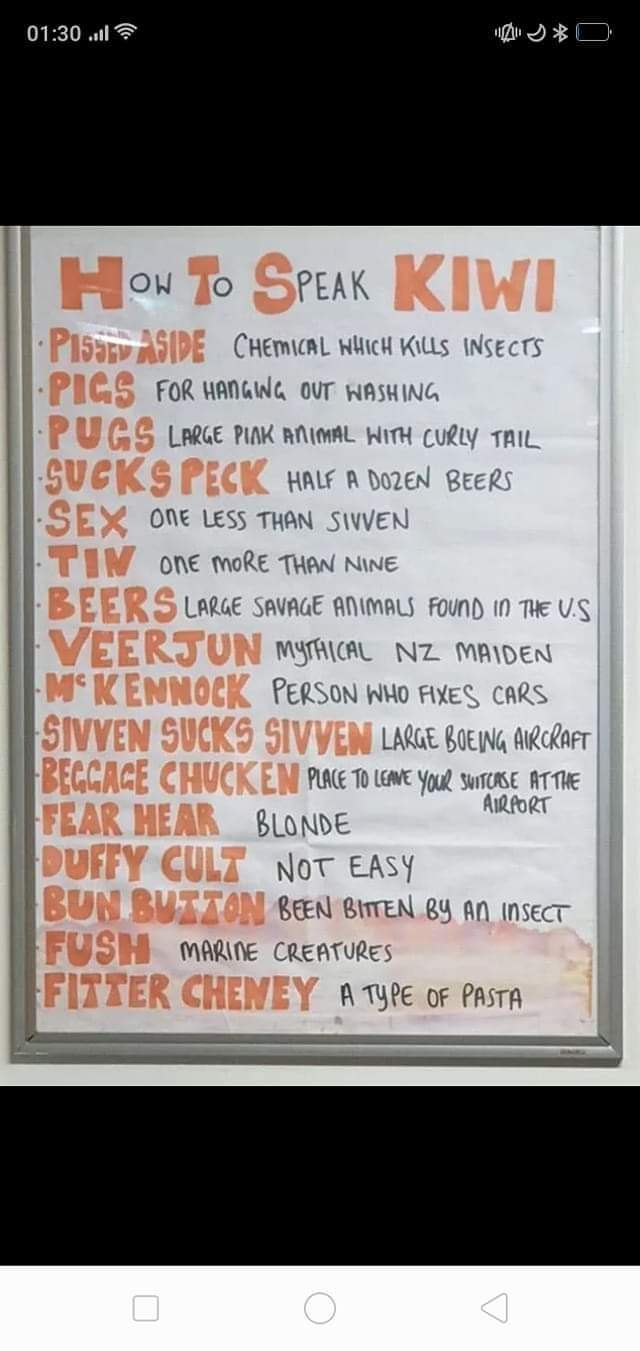 01:30
HOW TO SPEAK KIWI
· PISSED ASIDE CHEMICAL WHICH KILLS INSECTS
· PIGS FOR HANGING OUT WASHING
· PUGS LARGE PINK ANIMAL WITH CURLY TAIL
· SUCKS PECK HALF A DOZEN BEERS
· SEX ONE LESS THAN SIVVEN
· TIN ONE MORE THAN NINE
· BEERS LARGE SAVAGE ANIMALS FOUND IN THE U.S
· VEERJUN MYTHICAL NZ MAIDEN
· Mc KENNOCK PERSON WHO FIXES CARS
· SIVVEN SUCKS SIVVEN LARGE BOEING AIRCRAFT
· BEGGAGE CHUCKEN PLACE TO LEAVE YOUR SUITCASE AT THE
AIRPORT
· FEAR HEAR BLONDE
· DUFFY CULT NOT EASY
· BUN BUTTON BEEN BITTEN BY AN INSECT
· FUSH MARINE CREATURES
· FITTER CHENEY A TYPE OF PASTA